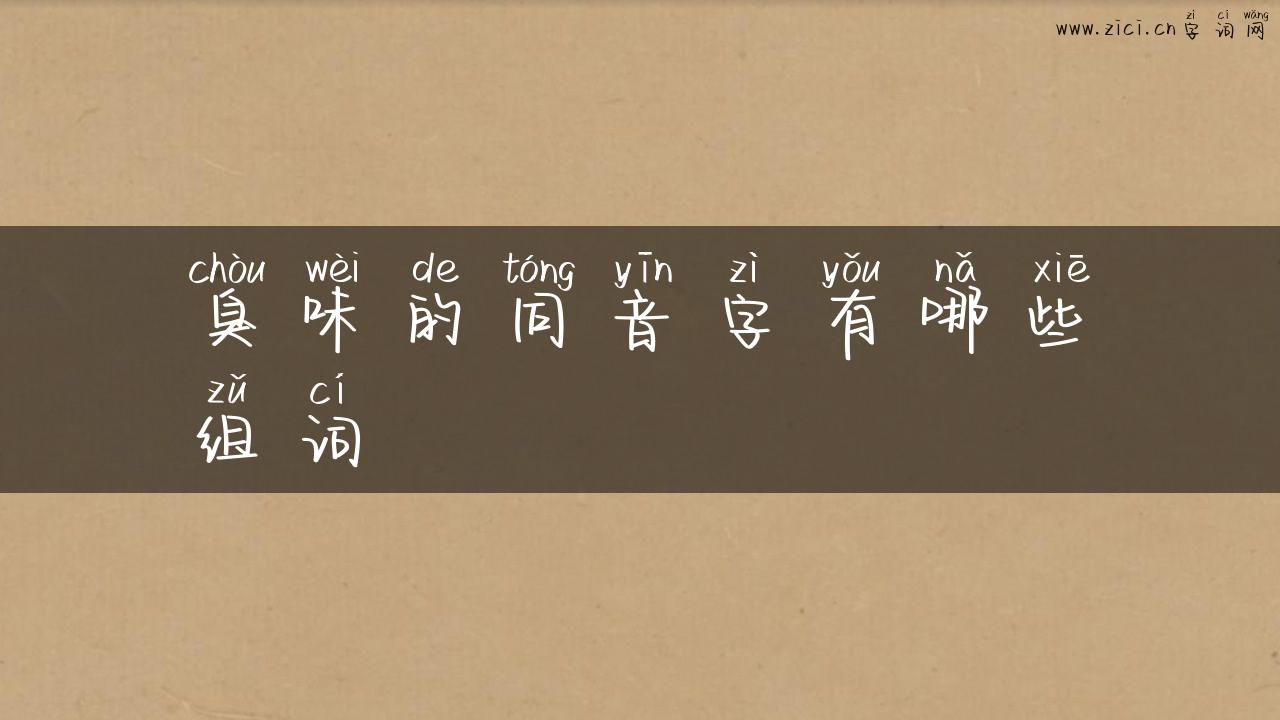 zì cí wǎng
www.zici.cn 字 词 网
chòu wèi de tóng yīn zì yǒu nǎ xiē
臭 味 的 同 音 字 有 哪 些
zǔ cí
组 词